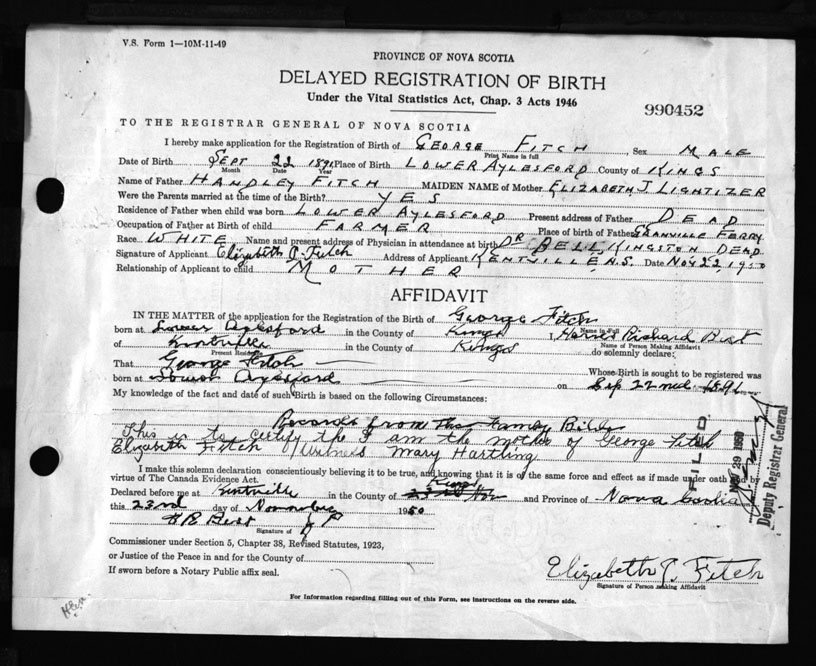 V.S. Form 1—10M-11-49
PROVINCE OF NOVA SCOTIA
DELAYED REGISTRATION OF BIRTH
Under the Vital Statistics Act, Chap. 3 Acts 1946
990452
TO THE REGISTRAR GENERAL OF NOVA SCOTIA
I hereby make application for the Registration of Birth of GEORGE FITCH, Sex MALE
Print Name in full
Date of Birth SEPT 22 1891 Place of Birth LOWER AYLESFORD County of KINGS
Month Date Year
Name of Father HANDLEY FITCH MAIDEN NAME of Mother ELIZABETH J LIGHTIZER
Were the Parents married at the time of the Birth? YES
Residence of Father when child was born LOWER AYLESFORD Present address of Father DEAD
Occupation of Father at Birth of child FARMER Place of birth of Father GRANVILLE FERRY
Race WHITE Name and present address of Physician in attendance at birth DR BELL KINGSTON DEAD
Signature of Applicant Elizabeth Fitch Address of Applicant KENTVILLE N.S. Date Nov 22 1950
Relationship of Applicant to child MOTHER
AFFIDAVIT
IN THE MATTER of the application for the Registration of the Birth of George Fitch
Name in Full
born at Lower Aylesford in the County of Kings, Harris Richard Best
of Kentville in the County of Kings
Name of Person Making Affidavit
Present Residence
do solemnly declare:
That George Fitch Whose Birth is sought to be registered was
born at Lower Aylesford on Sep 22nd 1891
My knowledge of the fact and date of such Birth is based on the following Circumstances:
Records from the Family Bible
This is to certify the I am the mother of George Fitch
Elizabeth Fitch Witness Mary Hartling
I make this solemn declaration conscientiously believing it to be true, and knowing that it is of the same force and effect as if made under oath and by
virtue of The Canada Evidence Act.
Declared before me at Kentville in the County of Kings and Province of Nova Scotia
this 22nd day of November 1950
H R Best J P
Signature of
Commissioner under Section 5, Chapter 38, Revised Statutes, 1923,
or Justice of the Peace in and for the County of
If sworn before a Notary Public affix seal.
Elizabeth Fitch
Signature of Person making Affidavit
For information regarding filling out of this Form, see instructions on the reverse side.
FILED
29 1950
Deputy Registrar General